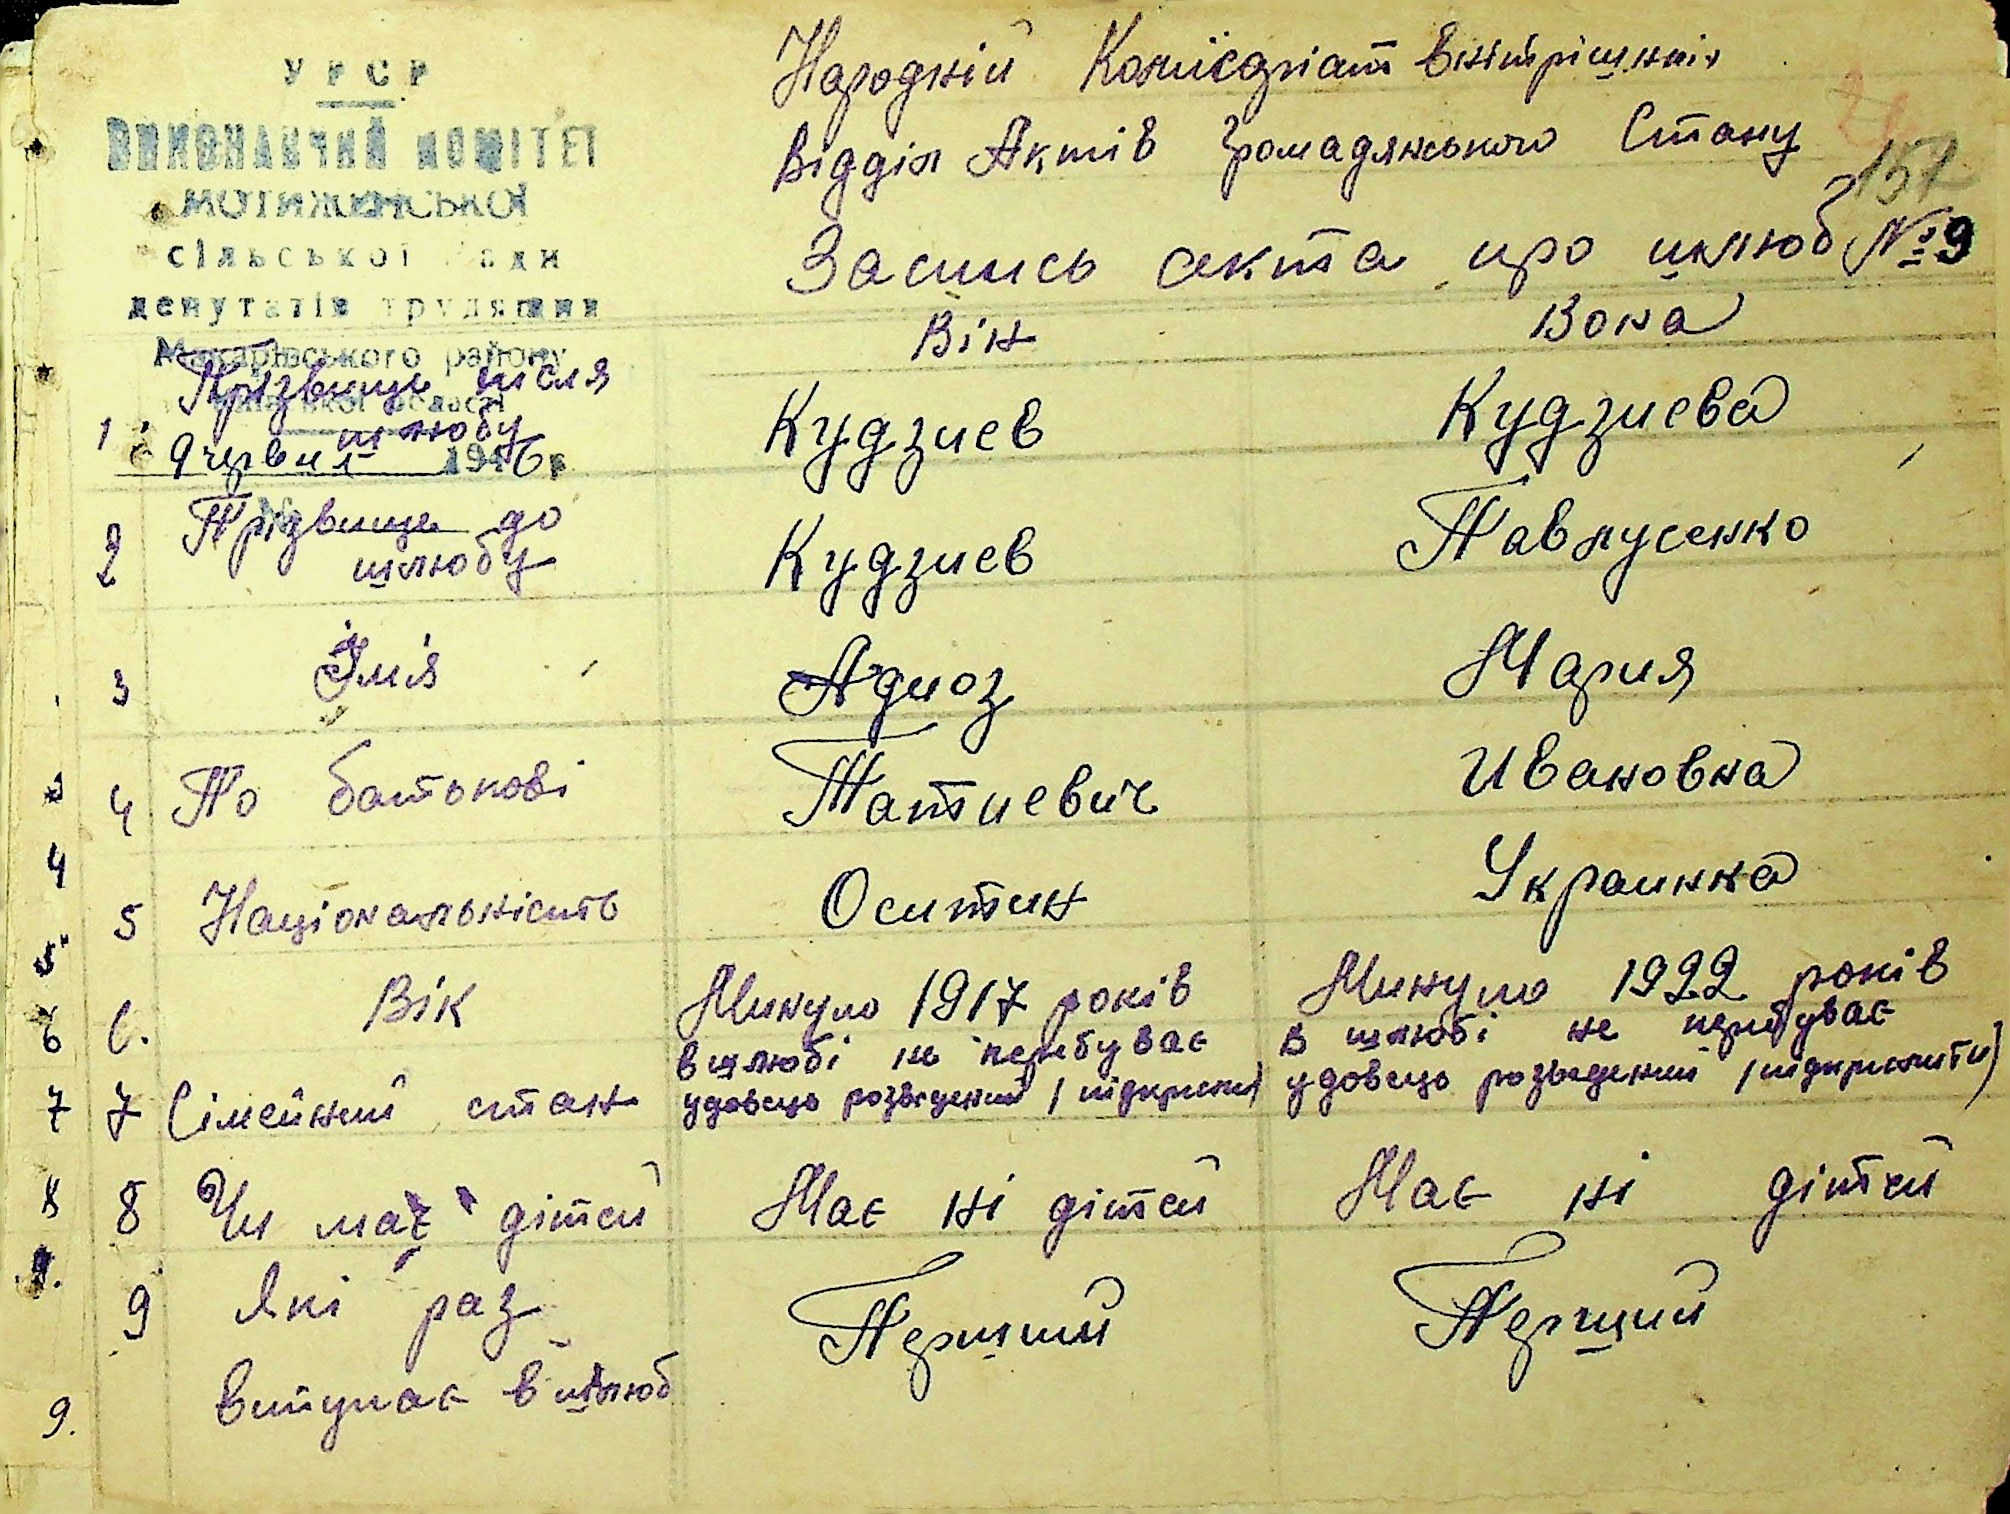 УРСР
ВИКОНАВЧИЙ КОМІТЕТ
МОТИЖИНСЬКОЇ
сільської ради
депутатів трудящих
Макарівського району
області
9 червня 1946 р
Народній Комісаріат Внутрішніх
Відділ Актів Громадянського Стану
157
Запись акта про шлюб №9
Він Вона
1 Прізвище після шлюбу Кудзиев Кудзиева
2 Прізвище до шлюбу Кудзиев Павлусенко
3 Імʼя Адиоз Мария
3 4 По батькові Татиевич Ивановна
4
5 Національність Оситин Украинка
5
6 6. Вік Минуло 1917 років Минуло 1922 років
7 7 Сімейний стан в шлюбі не перебуває в шлюбі не перебуває
удовець розведений удовець розведений (підкреслити)
8 8 Чи має дітей Має ні дітей Має ні дітей
9. 9 Які раз Перший Перший
9. вступає в шлюб